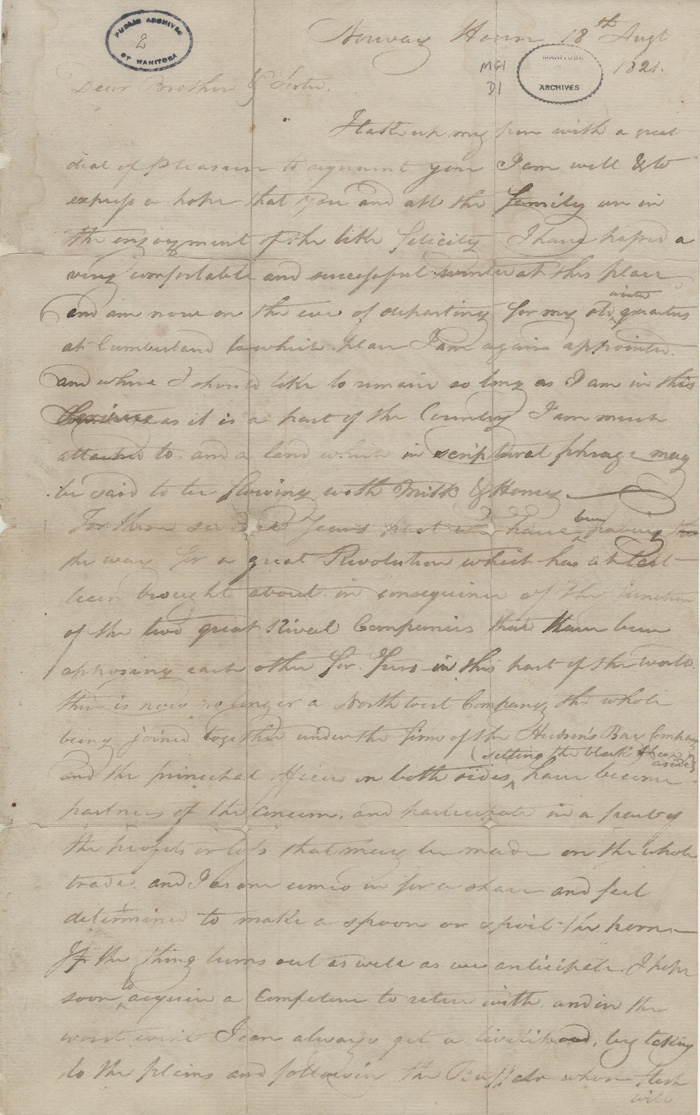 PUBLIC ARCHIVES
2
OF MANITOBA
Norway House 18th Augt
1821.
MG1
D1
MANITOBA
ARCHIVES
Dear Brother & Sister.
I take up my pen with a great
deal of pleasure to acquaint you I am well & to
express a hope that you and all the family are in
the enjoyment of the like felicity I have passed a
very comfortable and successful winter at this place
and am now on the eve of departing for my old winter quarters
at Cumberland to which place I am again appointed.
and where I should like to remain so long as I am in this
as it is a part of the Country I am much
attached to and a land which in scriptural phrase may
be said to be flowing with Milk & Honey.
For these several Years past we have been paving
the way for a great Revolution which has at last
been brought about in consequence of the junction
of the two great Rival Companies that have been
opposing each other for Furs in this part of the world
there is now no longer a North West Company the whole
being joined together under the firm of the Hudson's Bay Company
and the principal officers on both sides, (setting the black aside) have become
partners of the concern, and participate in a part of
the profits or loss that may be made on the whole
trade. and I as one come in for a share and feel
determined to make a spoon or spoil the horn
If the thing turns out as well as we anticipate. I hope
soon to acquire a Competence to retire with and in the
worst event I can always get a livelihood, by taking
to the plains and following the Buffalo whose flesh
will